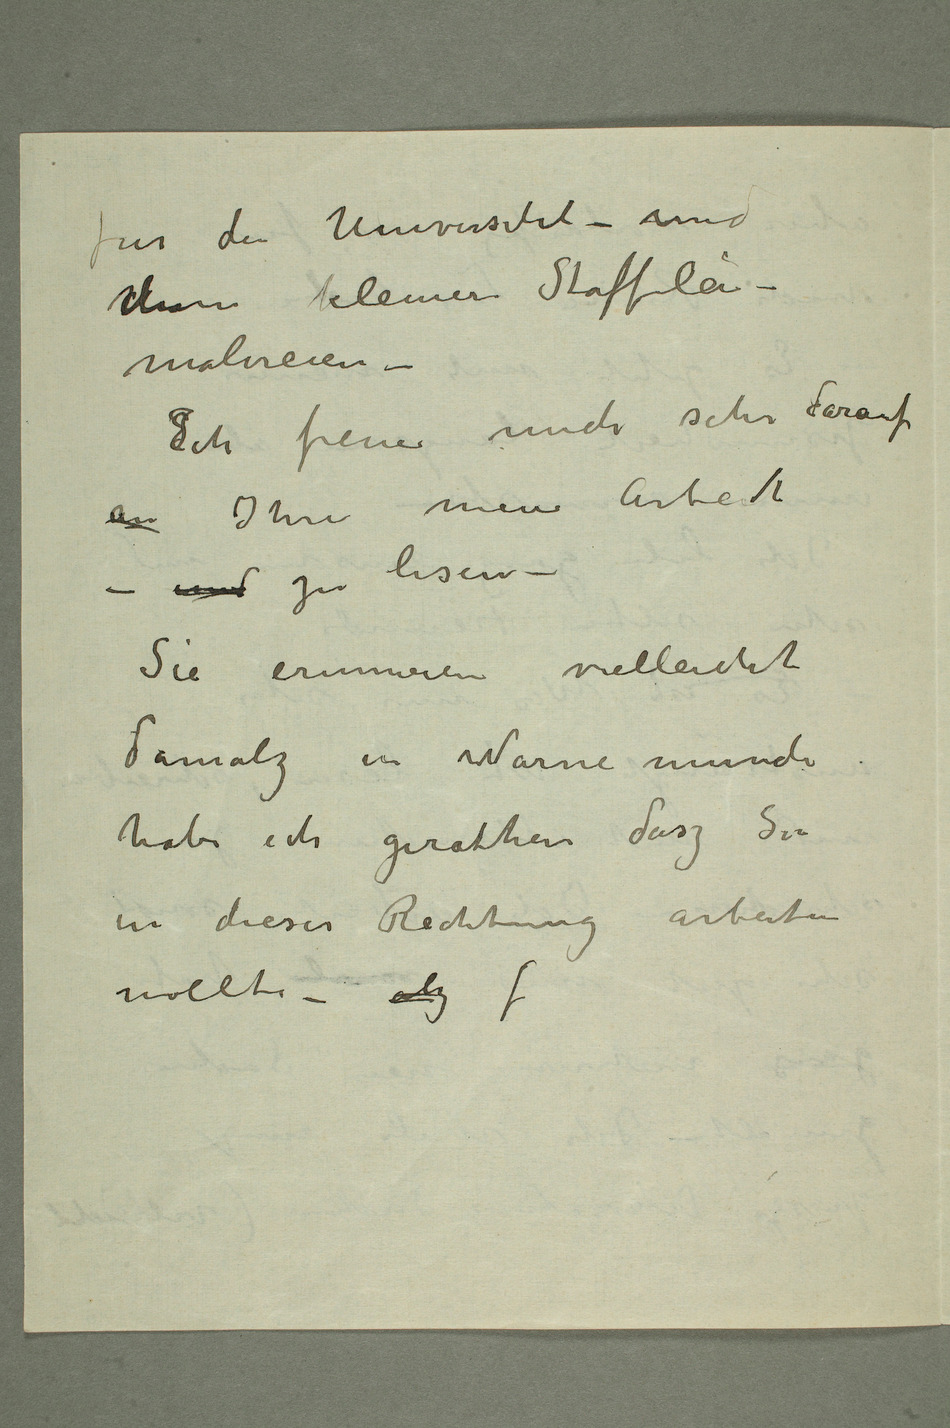 für die Universität – und
kleiner Staffelei–
malereien –
Ich freue mich sehr darauf
an Ihre neue Arbeit
– und zu lesen –
Sie erinneren vielleicht
damalz in Warnemunde
habe ich gerathen dasz Sie
in dieser Rechtung arbeiten
wollte – alz f